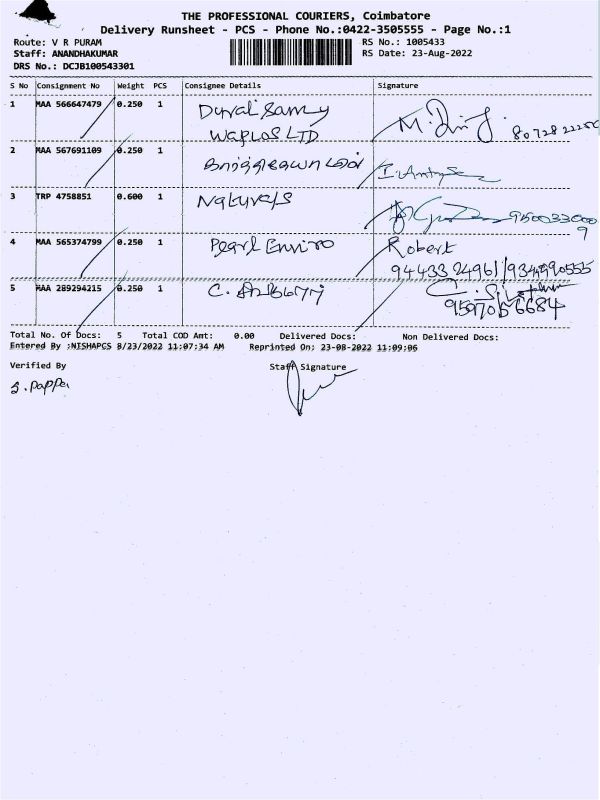 THE PROFESSIONAL COURIERS, Coimbatore
Delivery Runsheet - PCS - Phone No.:0422-3505555 - Page No.:1
Route: V R PURAM RS No.: 1005433
Staff: ANANDHAKUMAR RS Date: 23-Aug-2022
DRS No.: DCJB100543301
S No Consignment No Weight PCS Consignee Details Signature
1 MAA 566647479 0.250 1 Durai Samy
WAPLOS LTD
2 MAA 567691109 0.250 1
3 TRP 4758851 0.600 1 Naturals
4 MAA 565374799 0.250 1 Pearl Enviro Robert
94433 24961
5 MAA 289294215 0.250 1 C.
9597056684
Total No. Of Docs: 5 Total COD Amt: 0.00 Delivered Docs: Non Delivered Docs:
Entered By :NISHAPCS 8/23/2022 11:07:34 AM Reprinted On: 23-08-2022 11:09:06
Verified By Staff Signature
S. Pappa